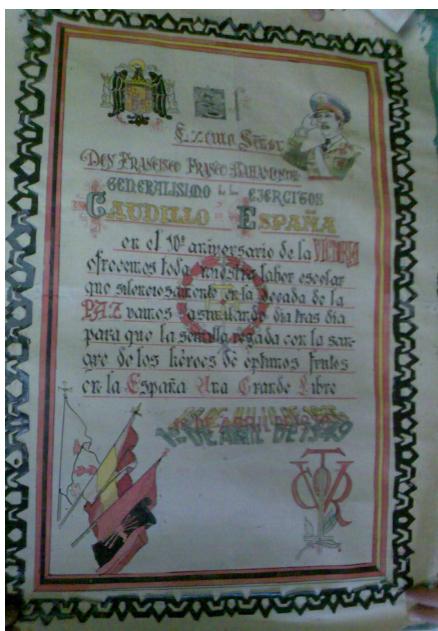 Excmo Señor
DON FRANCISCO FRANCO BAHAMONDE
GENERALISIMO de los EJERCITOS
CAUDILLO DE ESPAÑA
en el 10º aniversario de la VICTORIA
ofrecemos toda nuestra labor escolar
que silenciosamente en la decada de la
PAZ vamos asimilando dia tras dia
para que la semilla regada con la san-
gre de los héroes dé optimos frutos
en la España Una Grande Libre
1º DE ABRIL DE 1949